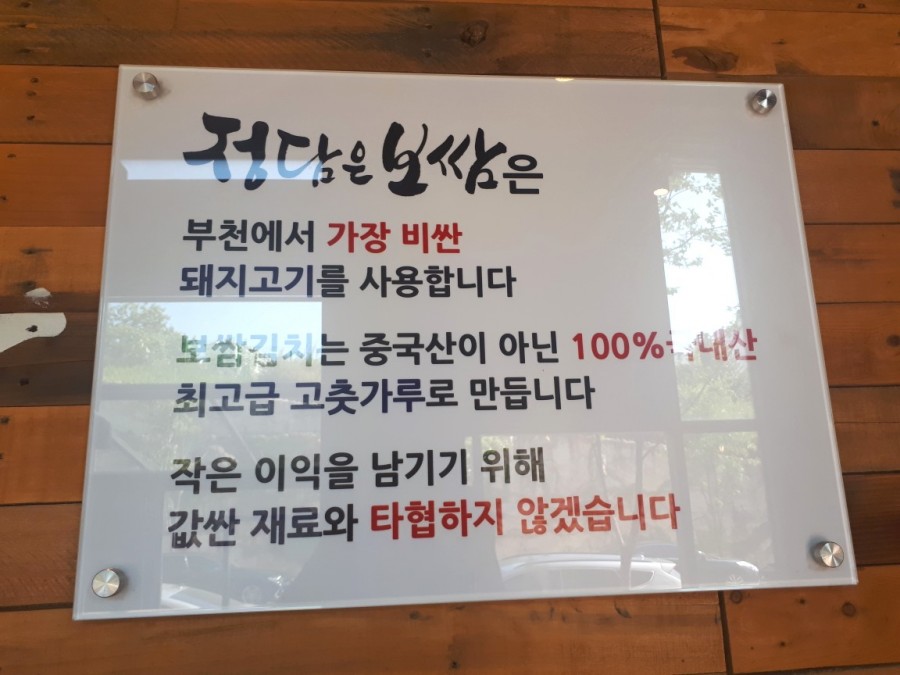 정담은보쌈은
부천에서 가장 비싼
돼지고기를 사용합니다
보쌈김치는 중국산이 아닌 100%국내산
최고급 고춧가루로 만듭니다
작은 이익을 남기기 위해
값싼 재료와 타협하지 않겠습니다